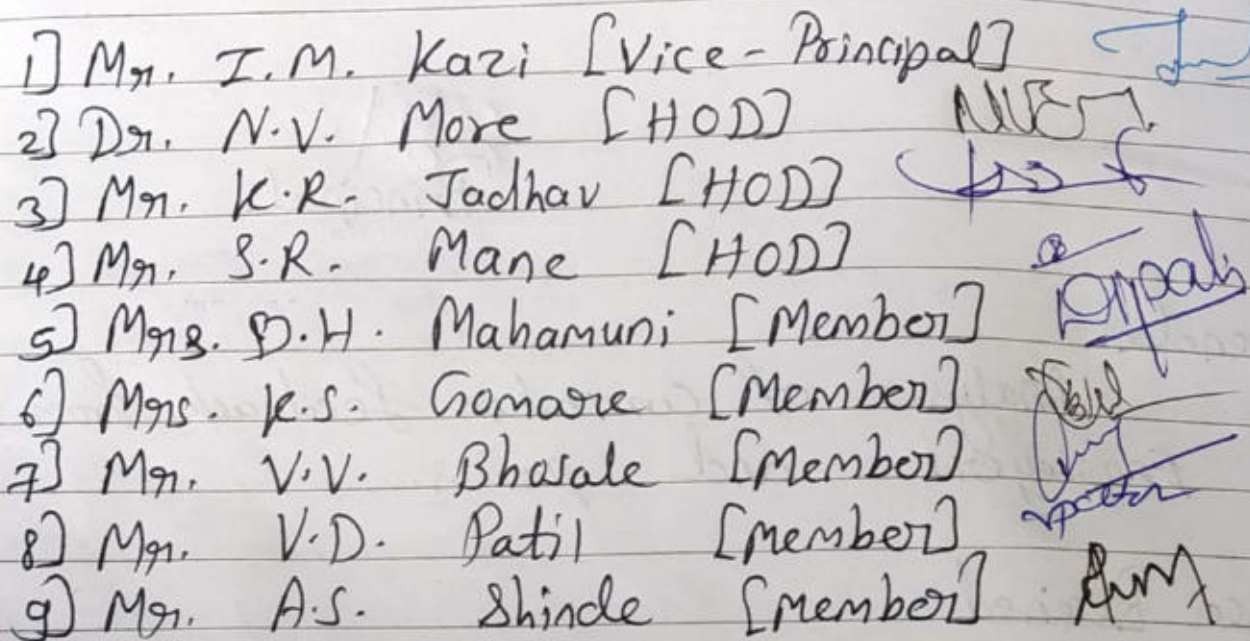 1] Mr. I.M. Kazi [Vice-Principal]
2] Dr. N.V. More [HOD]
3] Mr. K.R. Jadhav [HOD]
4] Mr. S.R. Mane [HOD]
5] Mrs. D.H. Mahamuni [Member] Dipali
6] Mrs. K.S. Gomare [Member]
7] Mr. V.V. Bhosale [Member]
8] Mr. V.D. Patil [Member]
9] Mr. A.S. Shinde [Member]